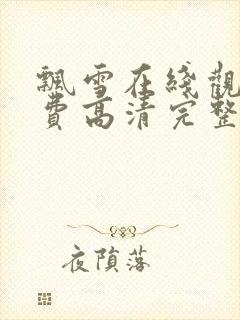 飄雪在綫觀
費高清完整
夜隕落